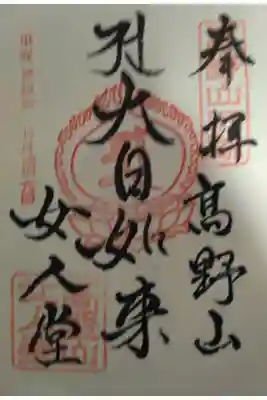 奉拝 高野山
大日如来
女人堂